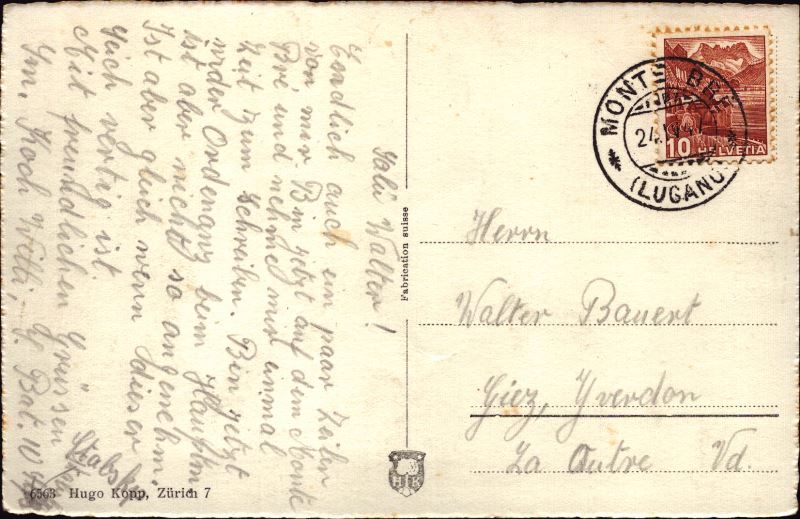 Salü Walter!
Endlich auch ein paar Zeilen
von mir. Bin jetzt auf dem Monte
Bré und nehme mir einmal
Zeit zum schreiben. Bin jetzt
wider Ordonanz beim Hauptm.
ist aber nicht so angenehm
Ist aber gleich wenn dieser
Seich vertig ist.
Mit freundlichen Grüssen
Im. Koch Willi, G. Bat. 10
Stabskp.
6563 Hugo Kopp, Zürich 7
Fabrication suisse
HK
MONTE BRÈ
(LUGANO)
10 HELVETIA
Herrn
Walter Bauert
Giez, Yverdon
La Outre Vd.